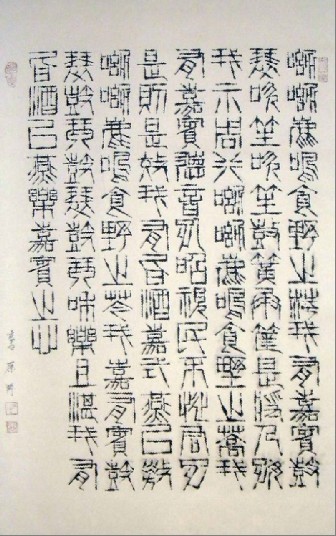 呦呦鹿鳴食野之苹我有嘉賓鼓
瑟吹笙吹笙鼓簧承筐是將好
我示周行呦呦鹿鳴食野之蒿我
有嘉賓德音孔昭視民不恌君子
是則是傚我有旨酒嘉式燕以敖
呦呦鹿鳴食野之芩我嘉有賓鼓
瑟鼓琴鼓瑟鼓琴和樂且湛我有
旨酒以燕樂嘉賓之心